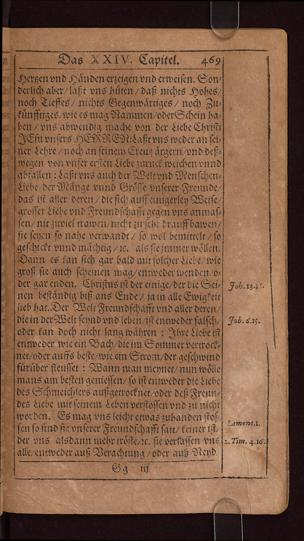 Das XXIV. Capitel. 469
Hertzen vnd Händen erzeigen vnd erweisen. Son-
derlich aber / laßt vns hüten / daß nichts Hohes /
noch Tieffes / nichts Gegenwärtiges / noch Zu-
künfftiges, wie es mag Nammen / oder Schein ha-
ben / vns abwendig mache von der Liebe Christi
JEsu vnsers HERREN: Laßt vns weder an sei-
ner Lehre / noch an seinem Creutz ärgern / vnd deß-
wegen von vnser ersten Liebe zuruck weichen vnnd
abfallen: Laßt vns auch der Welt vnd Menschen-
Liebe / der Mänge vnnd Grösse vnserer Freunde /
das ist aller deren / die sich auff einigerley Weise /
grosser Liebe vnd Freundschafft gegen vns anmas-
sen / nit zuviel trawen / nicht zu seht drauff bawen /
sie seyen so nahe verwandt / so wol bemittelt / so
geschickt vnnd mächtig / ꝛc. als sie immer wöllen.
Dann es kan sich gar bald mit solcher Liebe / wie
groß sie auch scheinen mag / entweder wenden / o-
der gar enden. Christus ist der einige / der die Sei-
nen beständig biß ans Ende / ja in alle Ewigkeit
lieb hat. Der Welt Freundschafft vnd aller deren /
die in der Welt seynd vnd leben / ist entweder falsch /
oder kan doch nicht lang währen: Ihre Liebe ist
entweder wie ein Bach / die im Sommer vertrock-
net / oder auffs beste / wie ein Strom / der geschwind
fürüber fleusset: Wann man meynet / nun wölle
mans am besten geniessen / so ist entweder die Liebe
des Schmeichlers außgetrocknet / oder deß Freun-
des Liebe mit seinem Leben verflossen vnd zu nicht
worden. Es mag vns leicht etwas zuhanden stos-
sen so sind sie vnserer Freundschafft satt / keiner ist /
der vns alsdann mehr tröste / ꝛc. sie verlassen vns
alle / entweder auß Verachtung / oder auß Neyd
Gg iij
Job. 6.15.
Lament. 1.
2. Tim. 4.16.